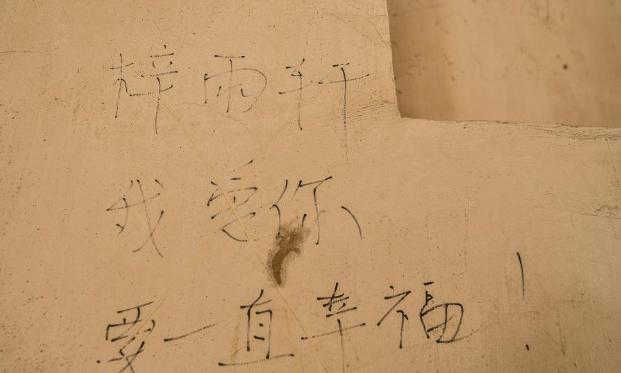 梓雨轩
我爱你
要一直幸福！